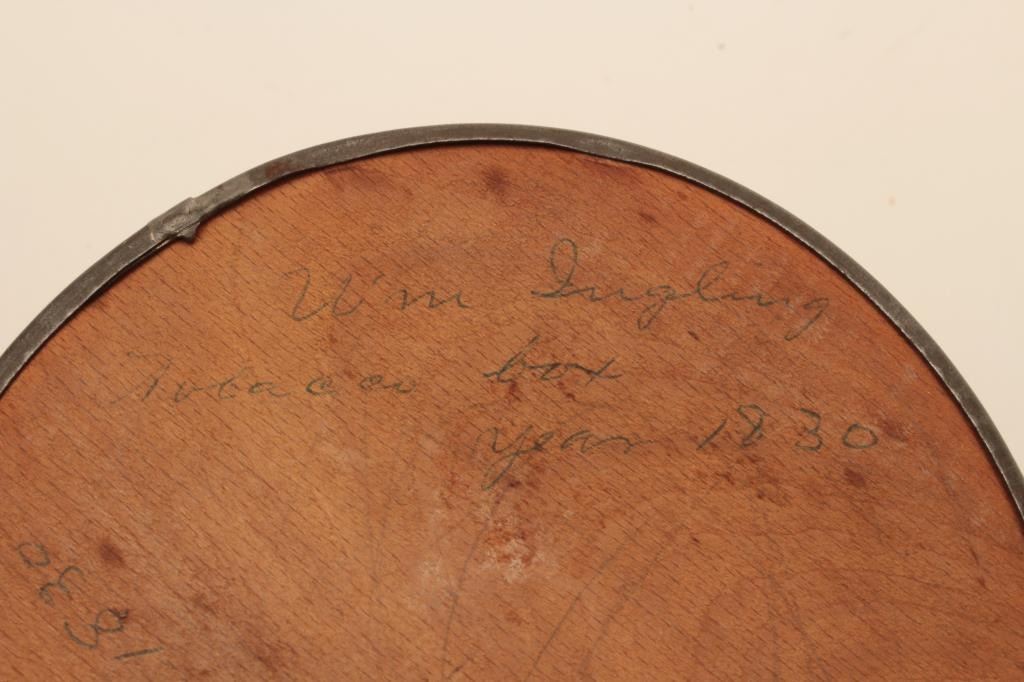 Wm Ingling
Tobacco box
year 1830
1830